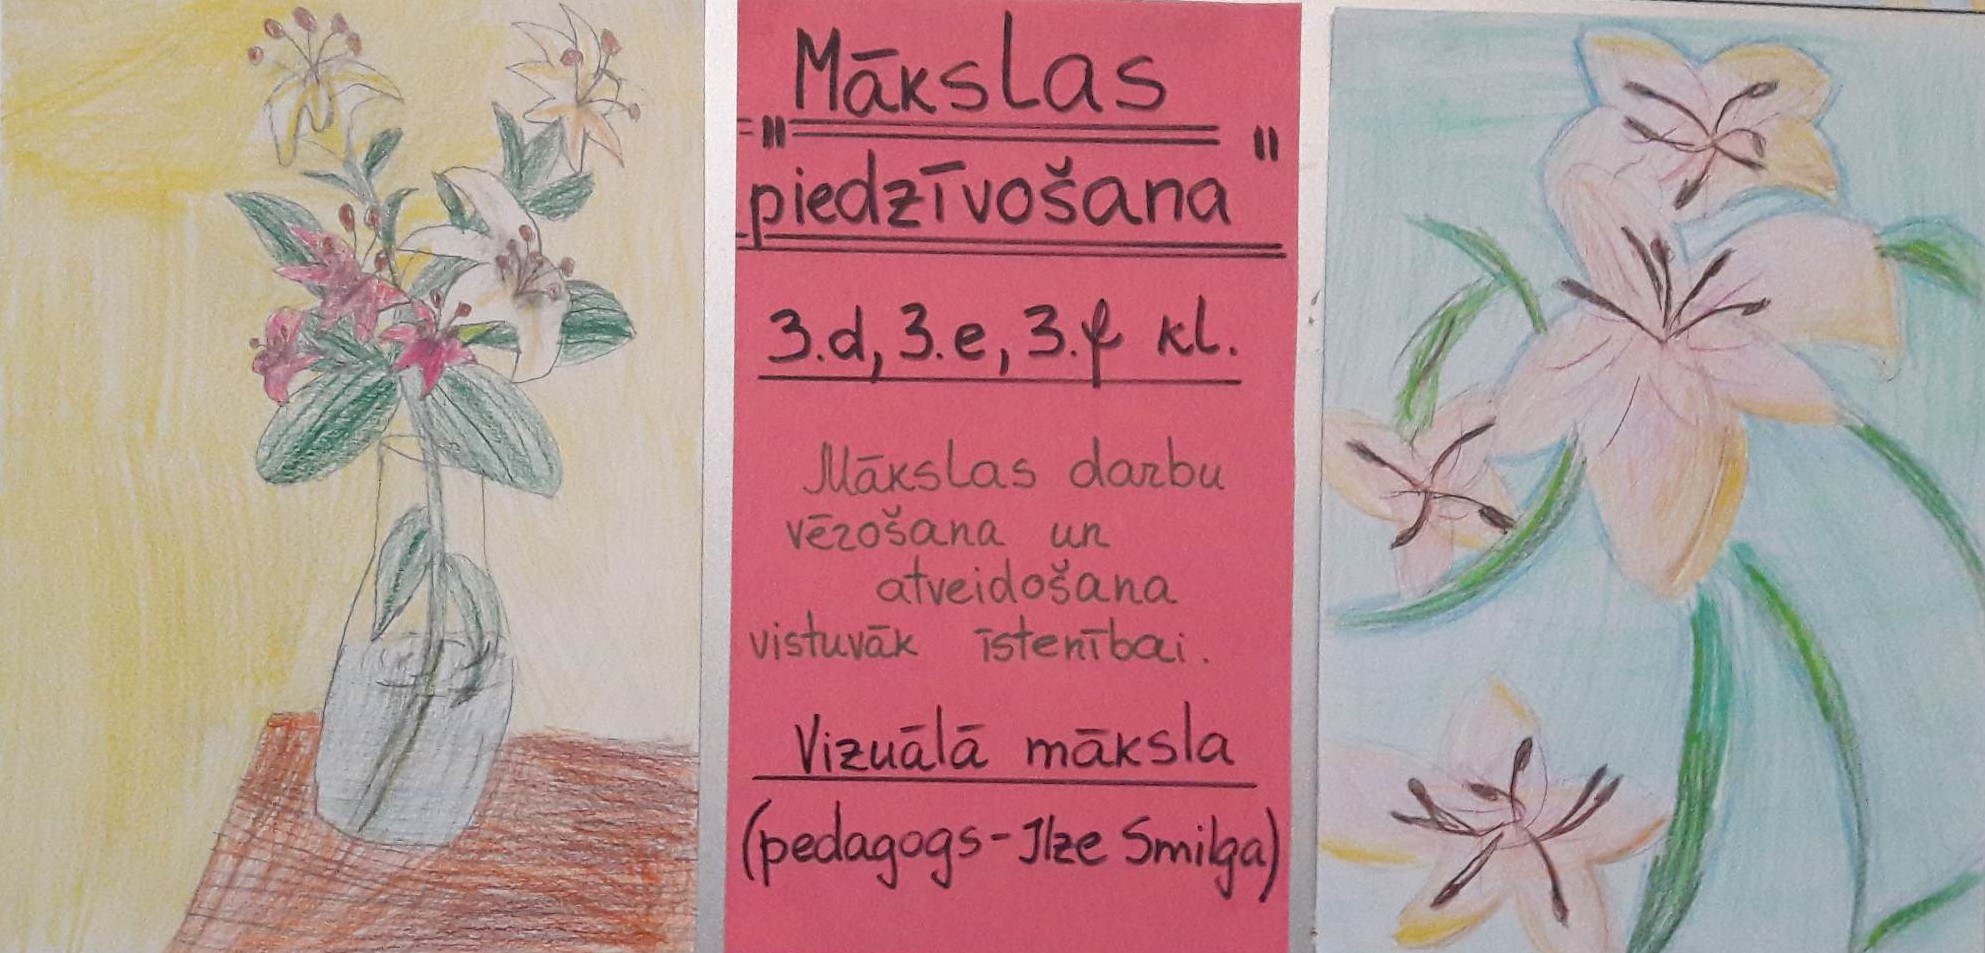 „Mākslas
piedzīvošana"
3.d, 3.e, 3.f kl.
Mākslas darbu
vērošana un
atveidošana
vistuvāk īstenībai.
Vizuālā māksla
(pedagogs-Ilze Smilga)